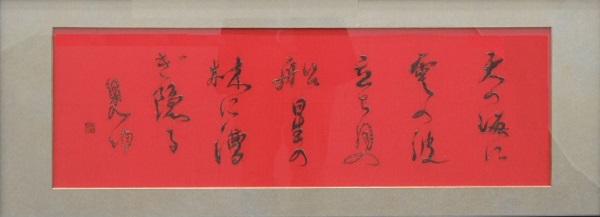 天の海に
雲の波
立ち月の
船星の
林に漕
ぎ隠る